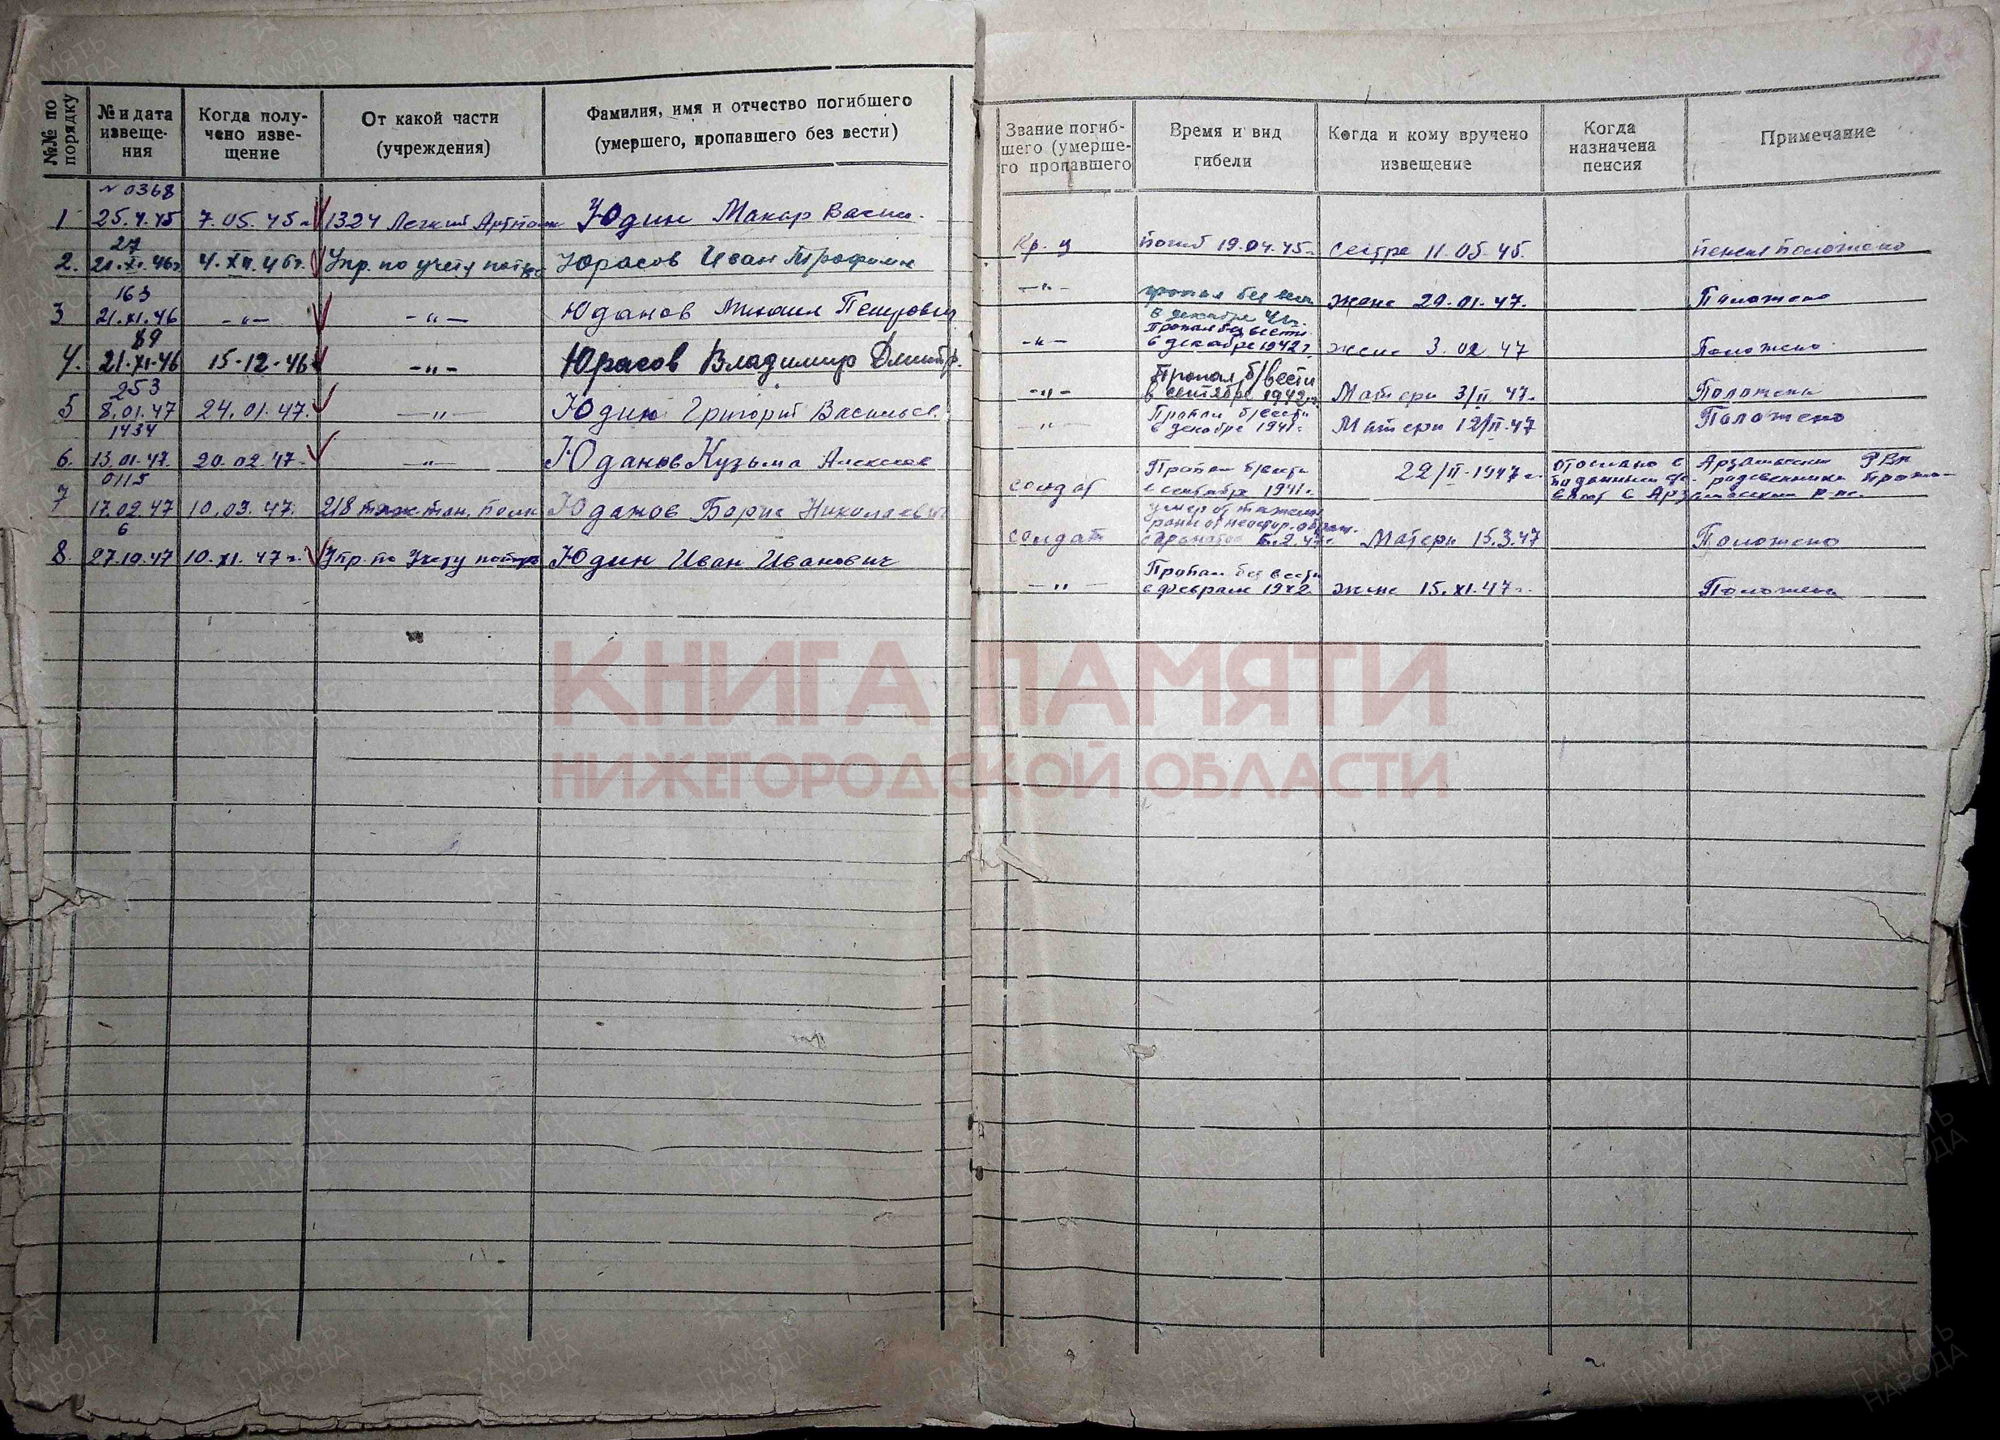 №№ по порядку
№ и дата извещения
Когда полу-
чено изве-
щение
От какой части
(учреждения)
Фамилия, имя и отчество погибшего
(умершего, пропавшего без вести)
Звание погиб-
шего (умерше-
го пропавшего
Время и вид
гибели
Когда и кому вручено
извещение
Когда
назначена
пенсия
Примечание
N 0368
1 25.4.45 7.05.45 1324 Легкий Юдин Макар Васил.
Кр-ц погиб 19.04.45г. сестре 11.05.45. пенсия положено
27
2. 21.XI.46г 4.XII.46г. Упр. по учету Юрасов Иван Трофим
-"- пропал без в декабре 41г. жене 29.01.47. Положено
163
3 21.XI.46 -"- -"- Юданов Михаил Петрович
-"- Пропал без вести в декабре 1942г. жене 3.02.47 Положено.
89
4. 21.XI.46 15-12-46 -"- Юрасов Владимир Дмитр.
-"- Пропал б/вести в сентябре 1942г. Матери 3/II 47. Положено
253
5 8.01.47 24.01.47. -"- Юдин Григорий Васильев.
-"- Пропал б/вести в декабре 1941г. Матери 12/II-47 Положено
1434
6. 13.01.47. 20.02.47. -"- Юданов Кузьма Алексеев
солдат Пропал б/вести в сентябре 1941г. 22/II-1947г. отослано в Арзамасский РВК
по данным родственники
в Арзамасском р-не.
0115
7 17.02.47 10.03.47. 218 тяж. тан. полк Юданов Борис Николаевич
солдат умер от раны от Матери 15.3.47 Положено
6
8. 27.10.47 10.XI.47г. Упр. по Учету Юдин Иван Иванович
-"- Пропал без вести в феврале 1942 жене 15.XI.47г. Положено
КНИГА ПАМЯТИ
НИЖЕГОРОДСКОЙ ОБЛАСТИ
ПАМЯТЬ НАРОДА